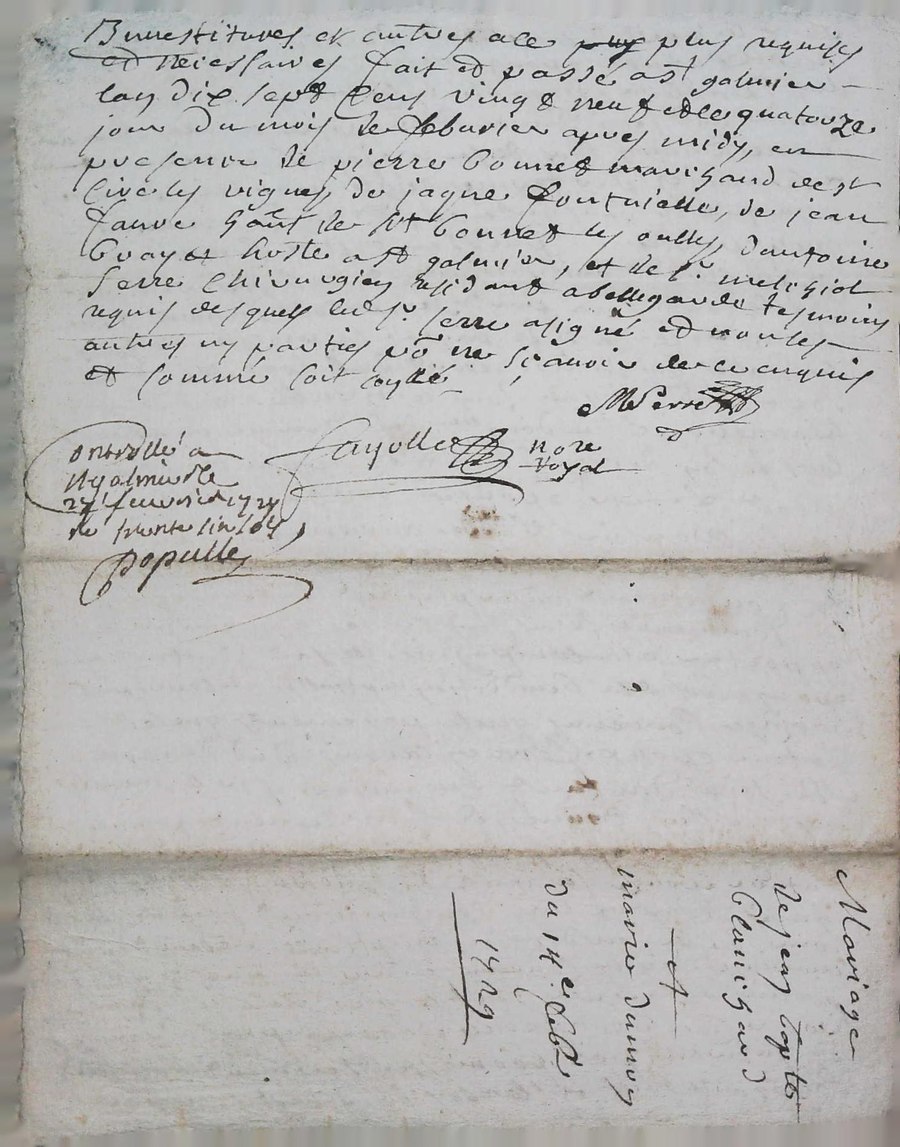 Jnvestitures et autres a ce plus requises
et necessaires fait et passé a st galmier
lan dix sept cens vingt neuf et le quatorze
jour du mois de febvrier apres midy, en
presence de pierre bonnet marchand de st
les vignes, de jaque, de jean
faure de st bonnet les oulles, dantoine
hoste a st galmier, et de sr melchiol
serre chirurgien residant a bellegarde tesmoins
requis desquels ledt sr serre a signé et non les
autres ny parties po ne scavoir de ce enquis
et sommé soit
MSerre
fayolle nore
royal
ontrollé a
st galmier le
27 fevrier 1729
Populle
Mariage
de jean bapte
et
marie
du 14e feb
1729